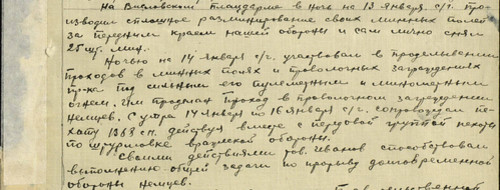 На Висловском плацдарме в ночь на 13 января с/г. про-
изводил сплошное разминирование своих минных полей
за передним краем нашей обороны и сам лично снял
25 шт. мин.
Ночью на 14 января с/г. участвовал в проделывании
проходов в минных полях и проволочных заграждениях
пр-ка под сильным его пулеметным и минометным
огнем. Им проделан проход в проволочном заграждении
немцев. С утра 14 января по 16 января с/г. сопровождал пе-
хоту 1368 с.п. действуя вместе с передовой группой пехоты
по штурмовке вражеской обороны.
Своими действиями тов. Иванов способствовал
выполнению общей задачи по прорыву долговременной
обороны немцев.